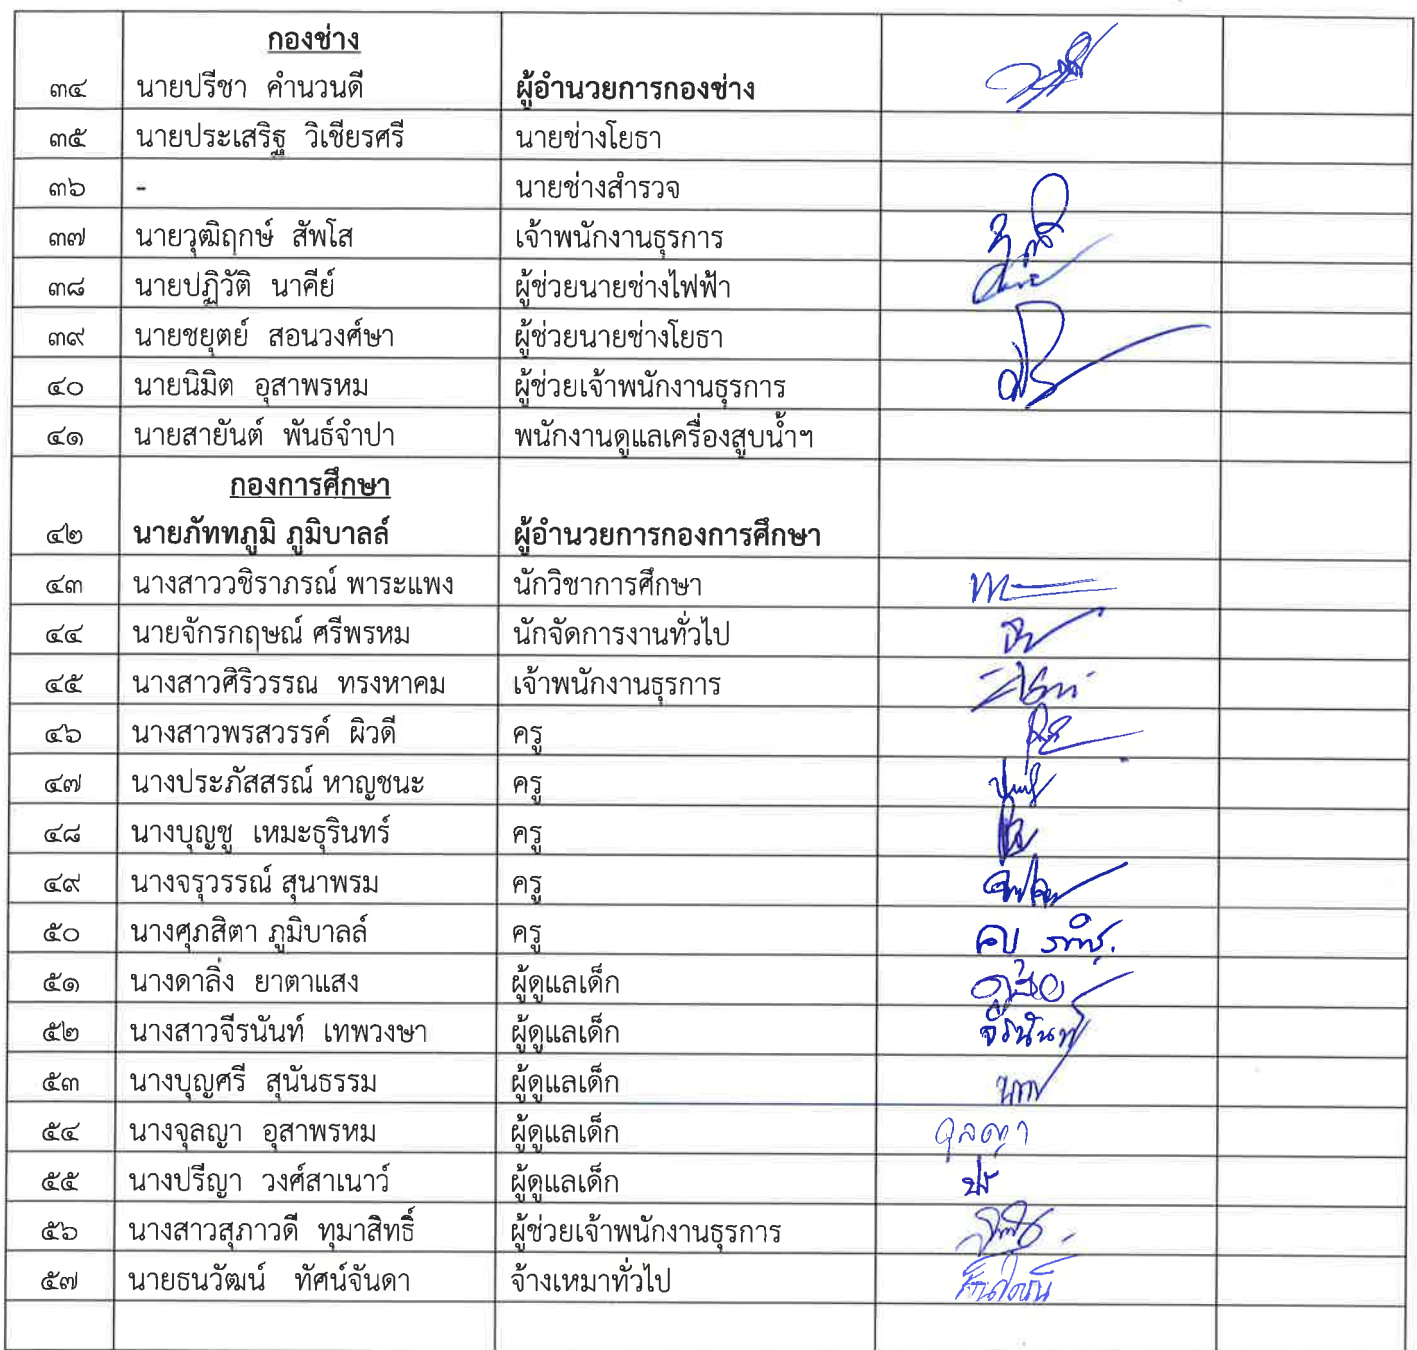 กองช่าง
๓๔ นายปรีชา คำนวนดี ผู้อำนวยการกองช่าง
๓๕ นายประเสริฐ วิเชียรศรี นายช่างโยธา
๓๖ - นายช่างสำรวจ
๓๗ นายวุฒิฤกษ์ สัพโส เจ้าพนักงานธุรการ
๓๘ นายปฏิวัติ นาคีย์ ผู้ช่วยนายช่างไฟฟ้า
๓๙ นายชยุตย์ สอนวงศ์ษา ผู้ช่วยนายช่างโยธา
๔๐ นายนิมิต อุสาพรหม ผู้ช่วยเจ้าพนักงานธุรการ
๔๑ นายสายันต์ พันธ์จำปา พนักงานดูแลเครื่องสูบน้ำฯ
กองการศึกษา
๔๒ นายภัททภูมิ ภูมิบาลล์ ผู้อำนวยการกองการศึกษา
๔๓ นางสาววชิราภรณ์ พาระแพง นักวิชาการศึกษา
๔๔ นายจักรกฤษณ์ ศรีพรหม นักจัดการงานทั่วไป
๔๕ นางสาวศิริวรรณ ทรงหาคม เจ้าพนักงานธุรการ
๔๖ นางสาวพรสวรรค์ ผิวดี ครู
๔๗ นางประภัสสรณ์ หาญชนะ ครู
๔๘ นางบุญชู เหมะธุรินทร์ ครู
๔๙ นางจรุวรรณ์ สุนาพรม ครู
๕๐ นางศุภสิตา ภูมิบาลล์ ครู
๕๑ นางดาลิ่ง ยาตาแสง ผู้ดูแลเด็ก
๕๒ นางสาวจีรนันท์ เทพวงษา ผู้ดูแลเด็ก จีรนันท์
๕๓ นางบุญศรี สุนันธรรม ผู้ดูแลเด็ก
๕๔ นางจุลญา อุสาพรหม ผู้ดูแลเด็ก จุลญา
๕๕ นางปรีญา วงศ์สาเนาว์ ผู้ดูแลเด็ก
๕๖ นางสาวสุภาวดี ทุมาสิทธิ์ ผู้ช่วยเจ้าพนักงานธุรการ
๕๗ นายธนวัฒน์ ทัศน์จันดา จ้างเหมาทั่วไป